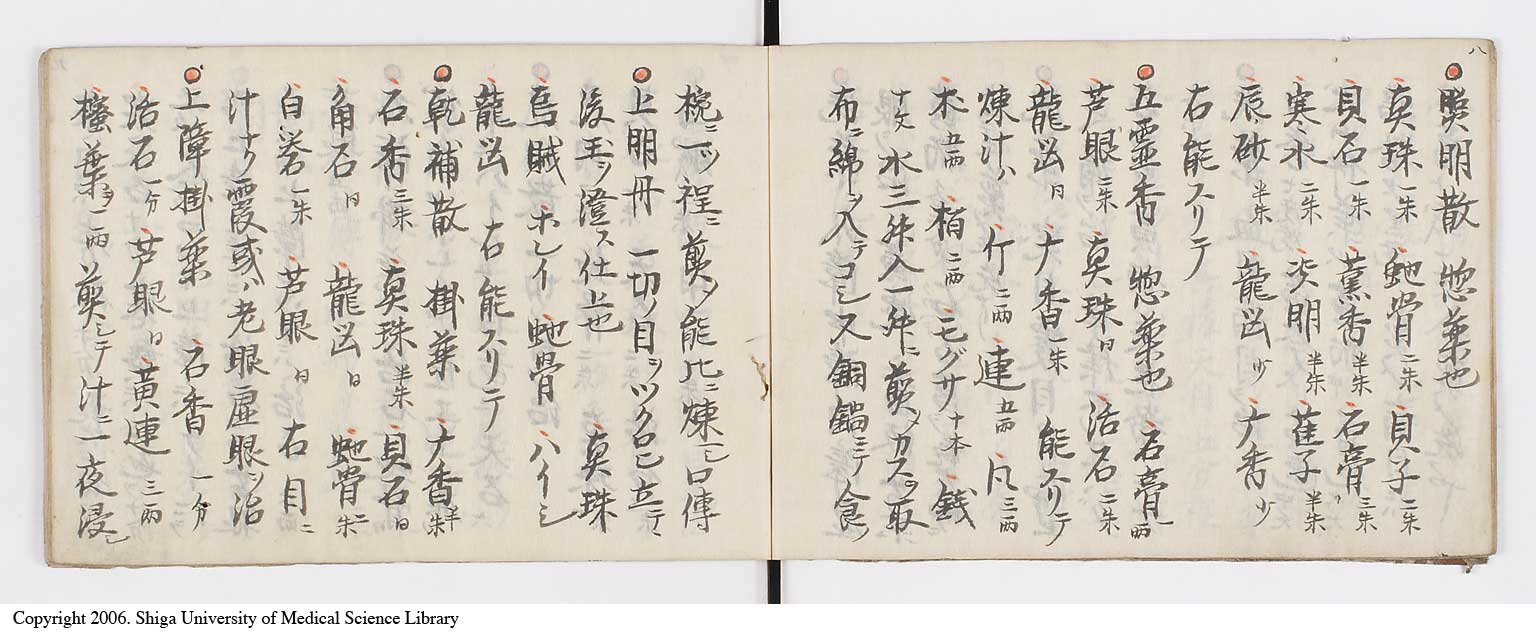 八
明散 惣薬也
真珠一朱 虵骨二朱 貝子二朱
貝石一朱 薫香半朱 石膏三朱
寒水二朱 决明半朱 萑子半朱
辰砂半朱 龍凶少 ナ香少
右能スリテ
五霊香 惣薬也 石膏一両
芦眼二朱 真珠日 活石二朱
龍凶日 ナ香一朱 能スリテ
煉汁ハ 亻二両 連五両 凡三両
木五両 栢二両 モグサ十本 銭
十文 水三舛入一舛ニ煎メカスヲ取
布ニ綿ヲ入テコシ又銅鍋ニテ食
椀ニ一ツ程ニ煎メ能比ニ煉一シ口傳
上明丹 一切ノ目ヲツクロヒ立テ
後玉ヲ澄ス仕上也 真珠
烏賊ホシイ 虵骨 ハイシ
龍凶 右能スリテ
乾補散 掛薬 ナ香半朱
石香三朱 真珠半朱 貝石日
角石日 龍凶日 虵骨二朱
白一朱 芦眼日 右目ニ
汁ナリ霞或ハ老眼虚眼ヲ治
上障掛薬 石香一分
活石一分 芦眼日 黄連三両
葉ヲ一両煎シテ汁ニ一夜浸シ
Copyright 2006. Shiga University of Medical Science Library